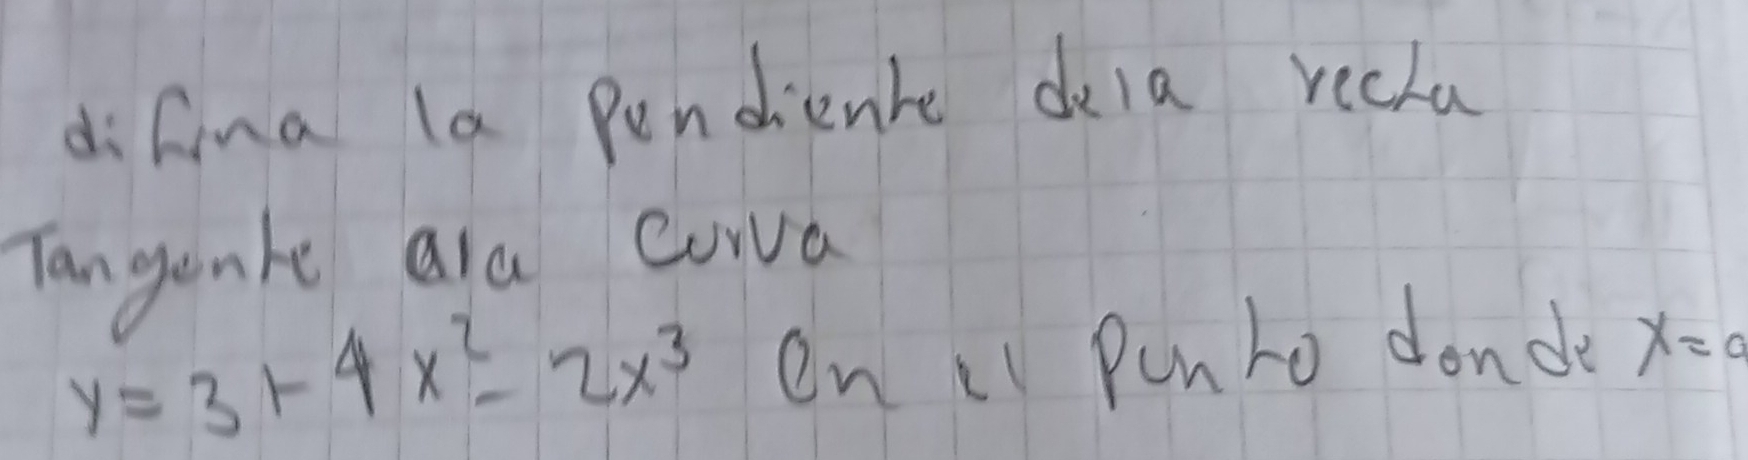 difina la pendiente dela recta
Tangente ala curva
y = 3 + 4x² - 2x³ en el punto donde x = a